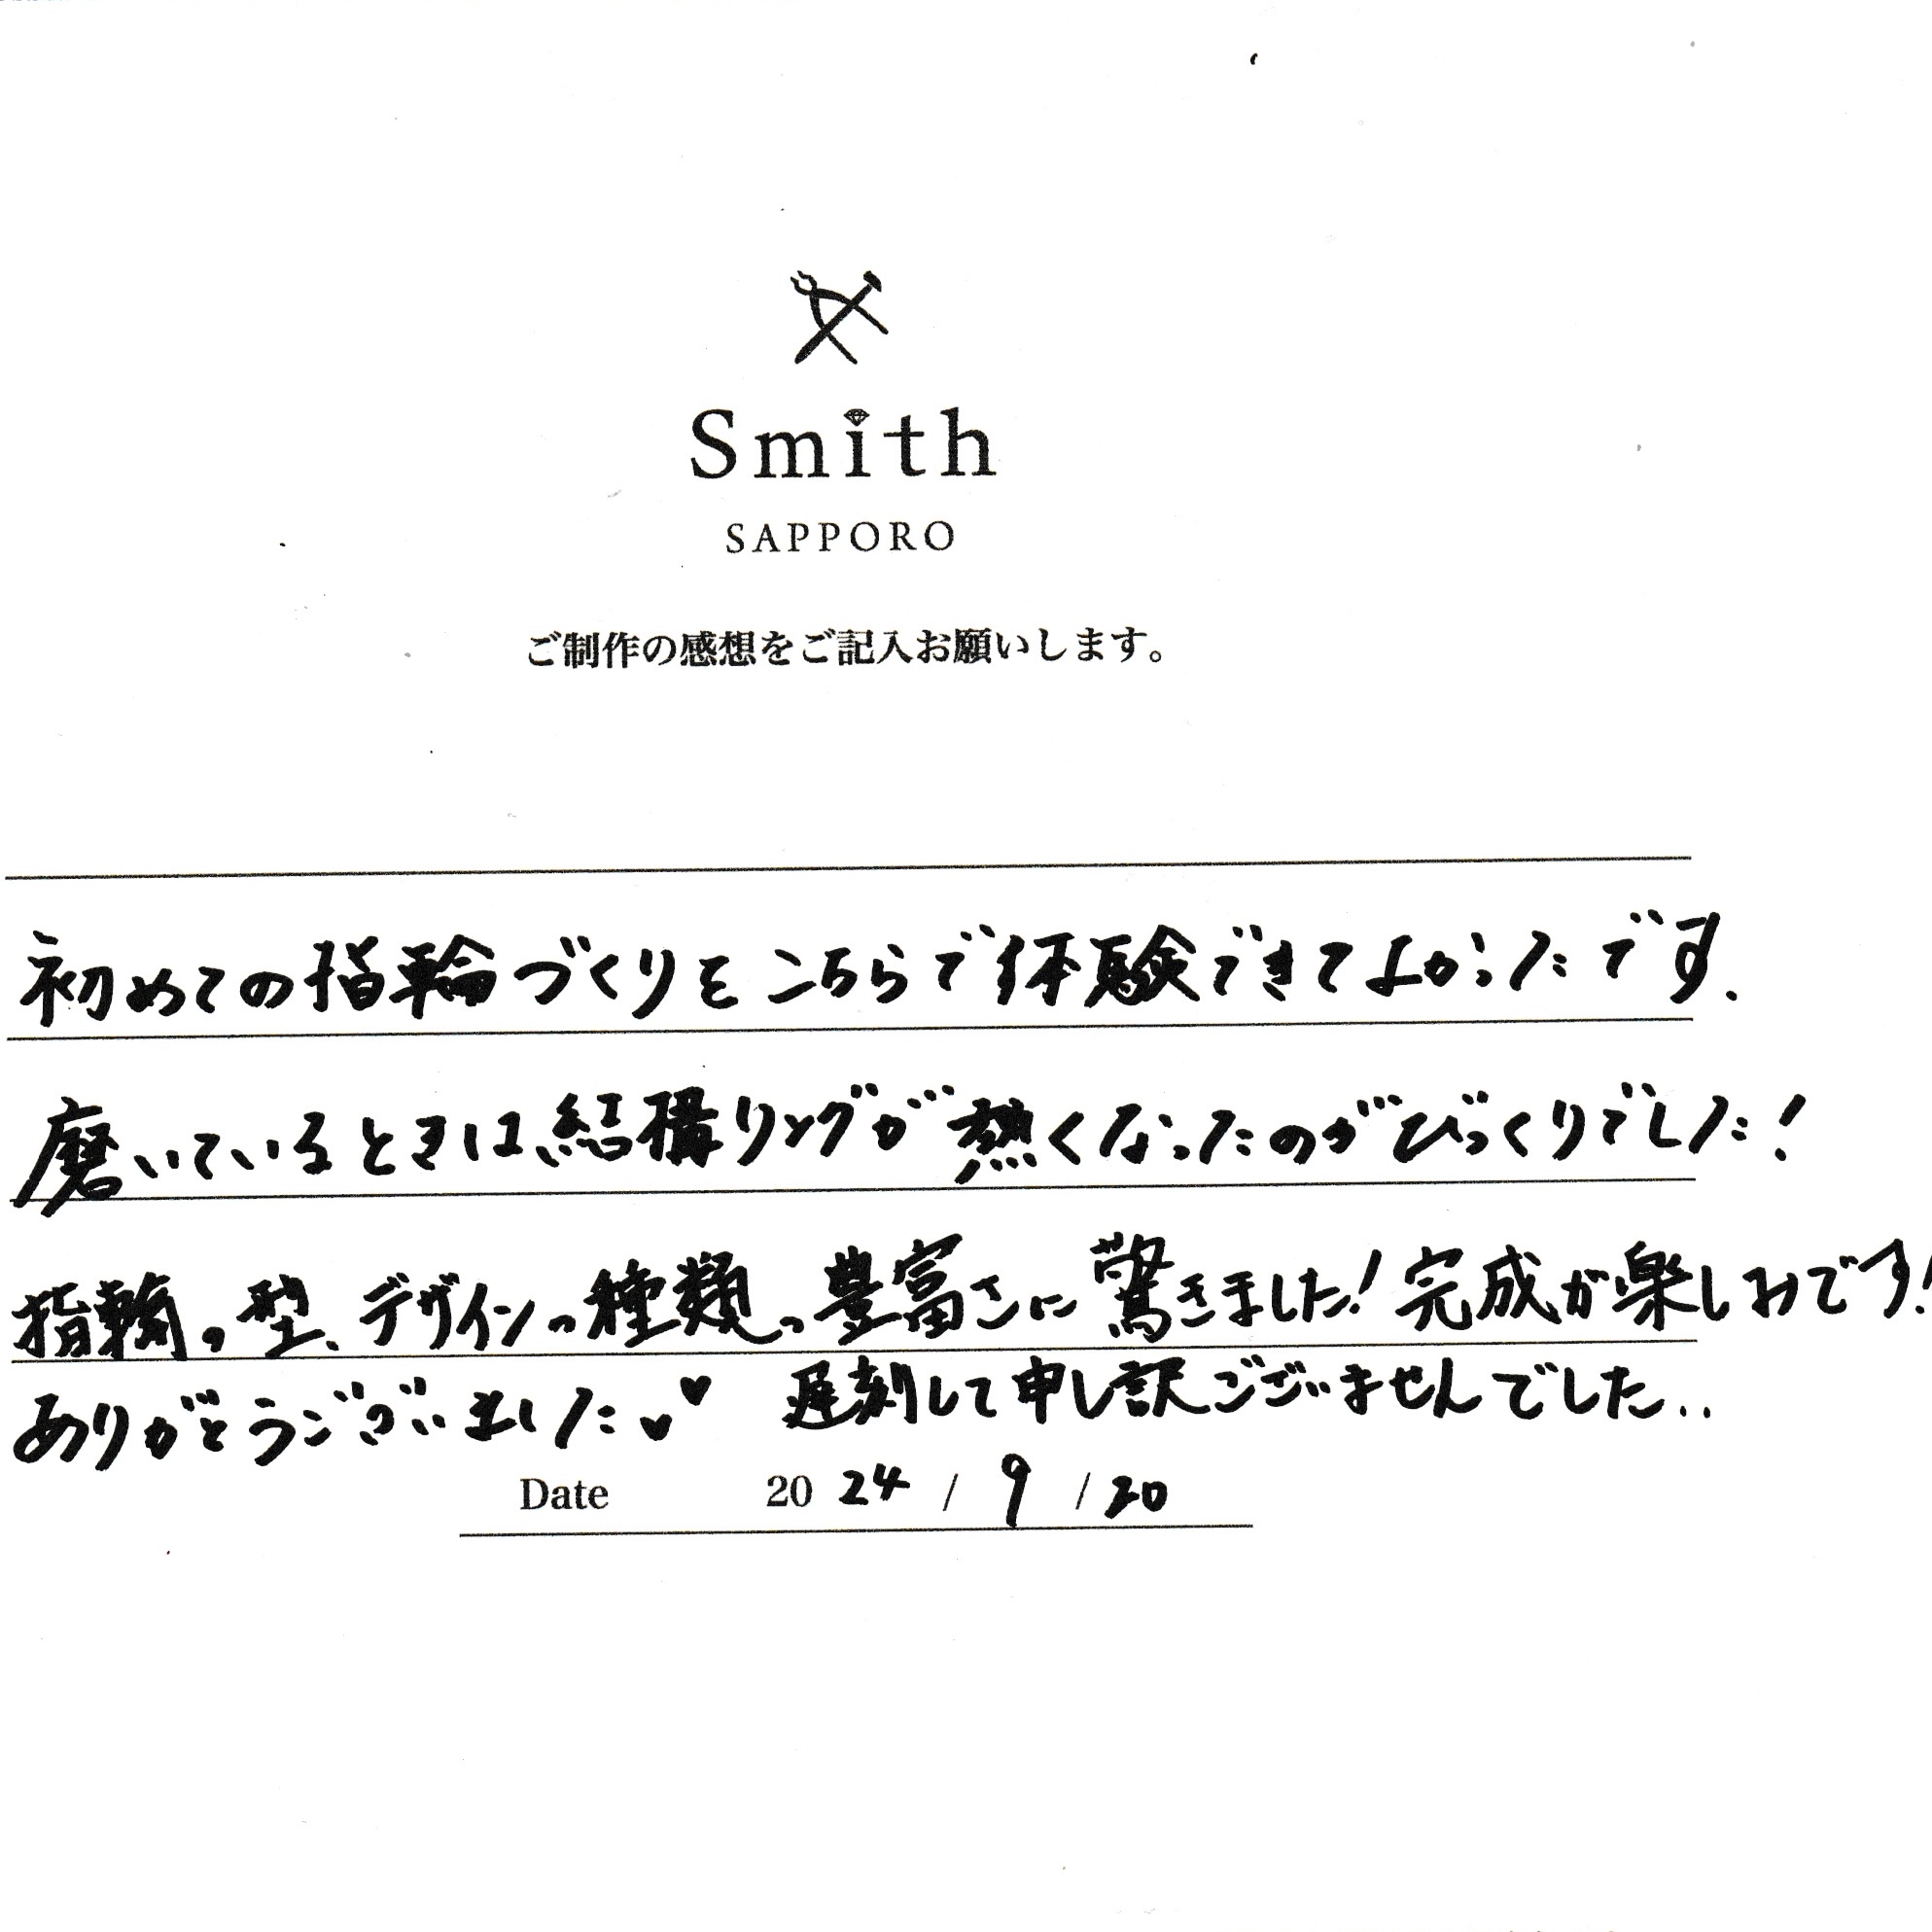 Smith
SAPPORO
ご制作の感想をご記入お願いします。
初めての指輪づくりをこちらで体験できてよかったです.
磨いているときは、結構リングが熱くなったのがびっくりでした!
指輪の型、デザインの種類の豊富さに驚きました!完成が楽しみです!
ありがとうございました♥ 遅刻して申し訳ございませんでした..
Date 2024/9/20